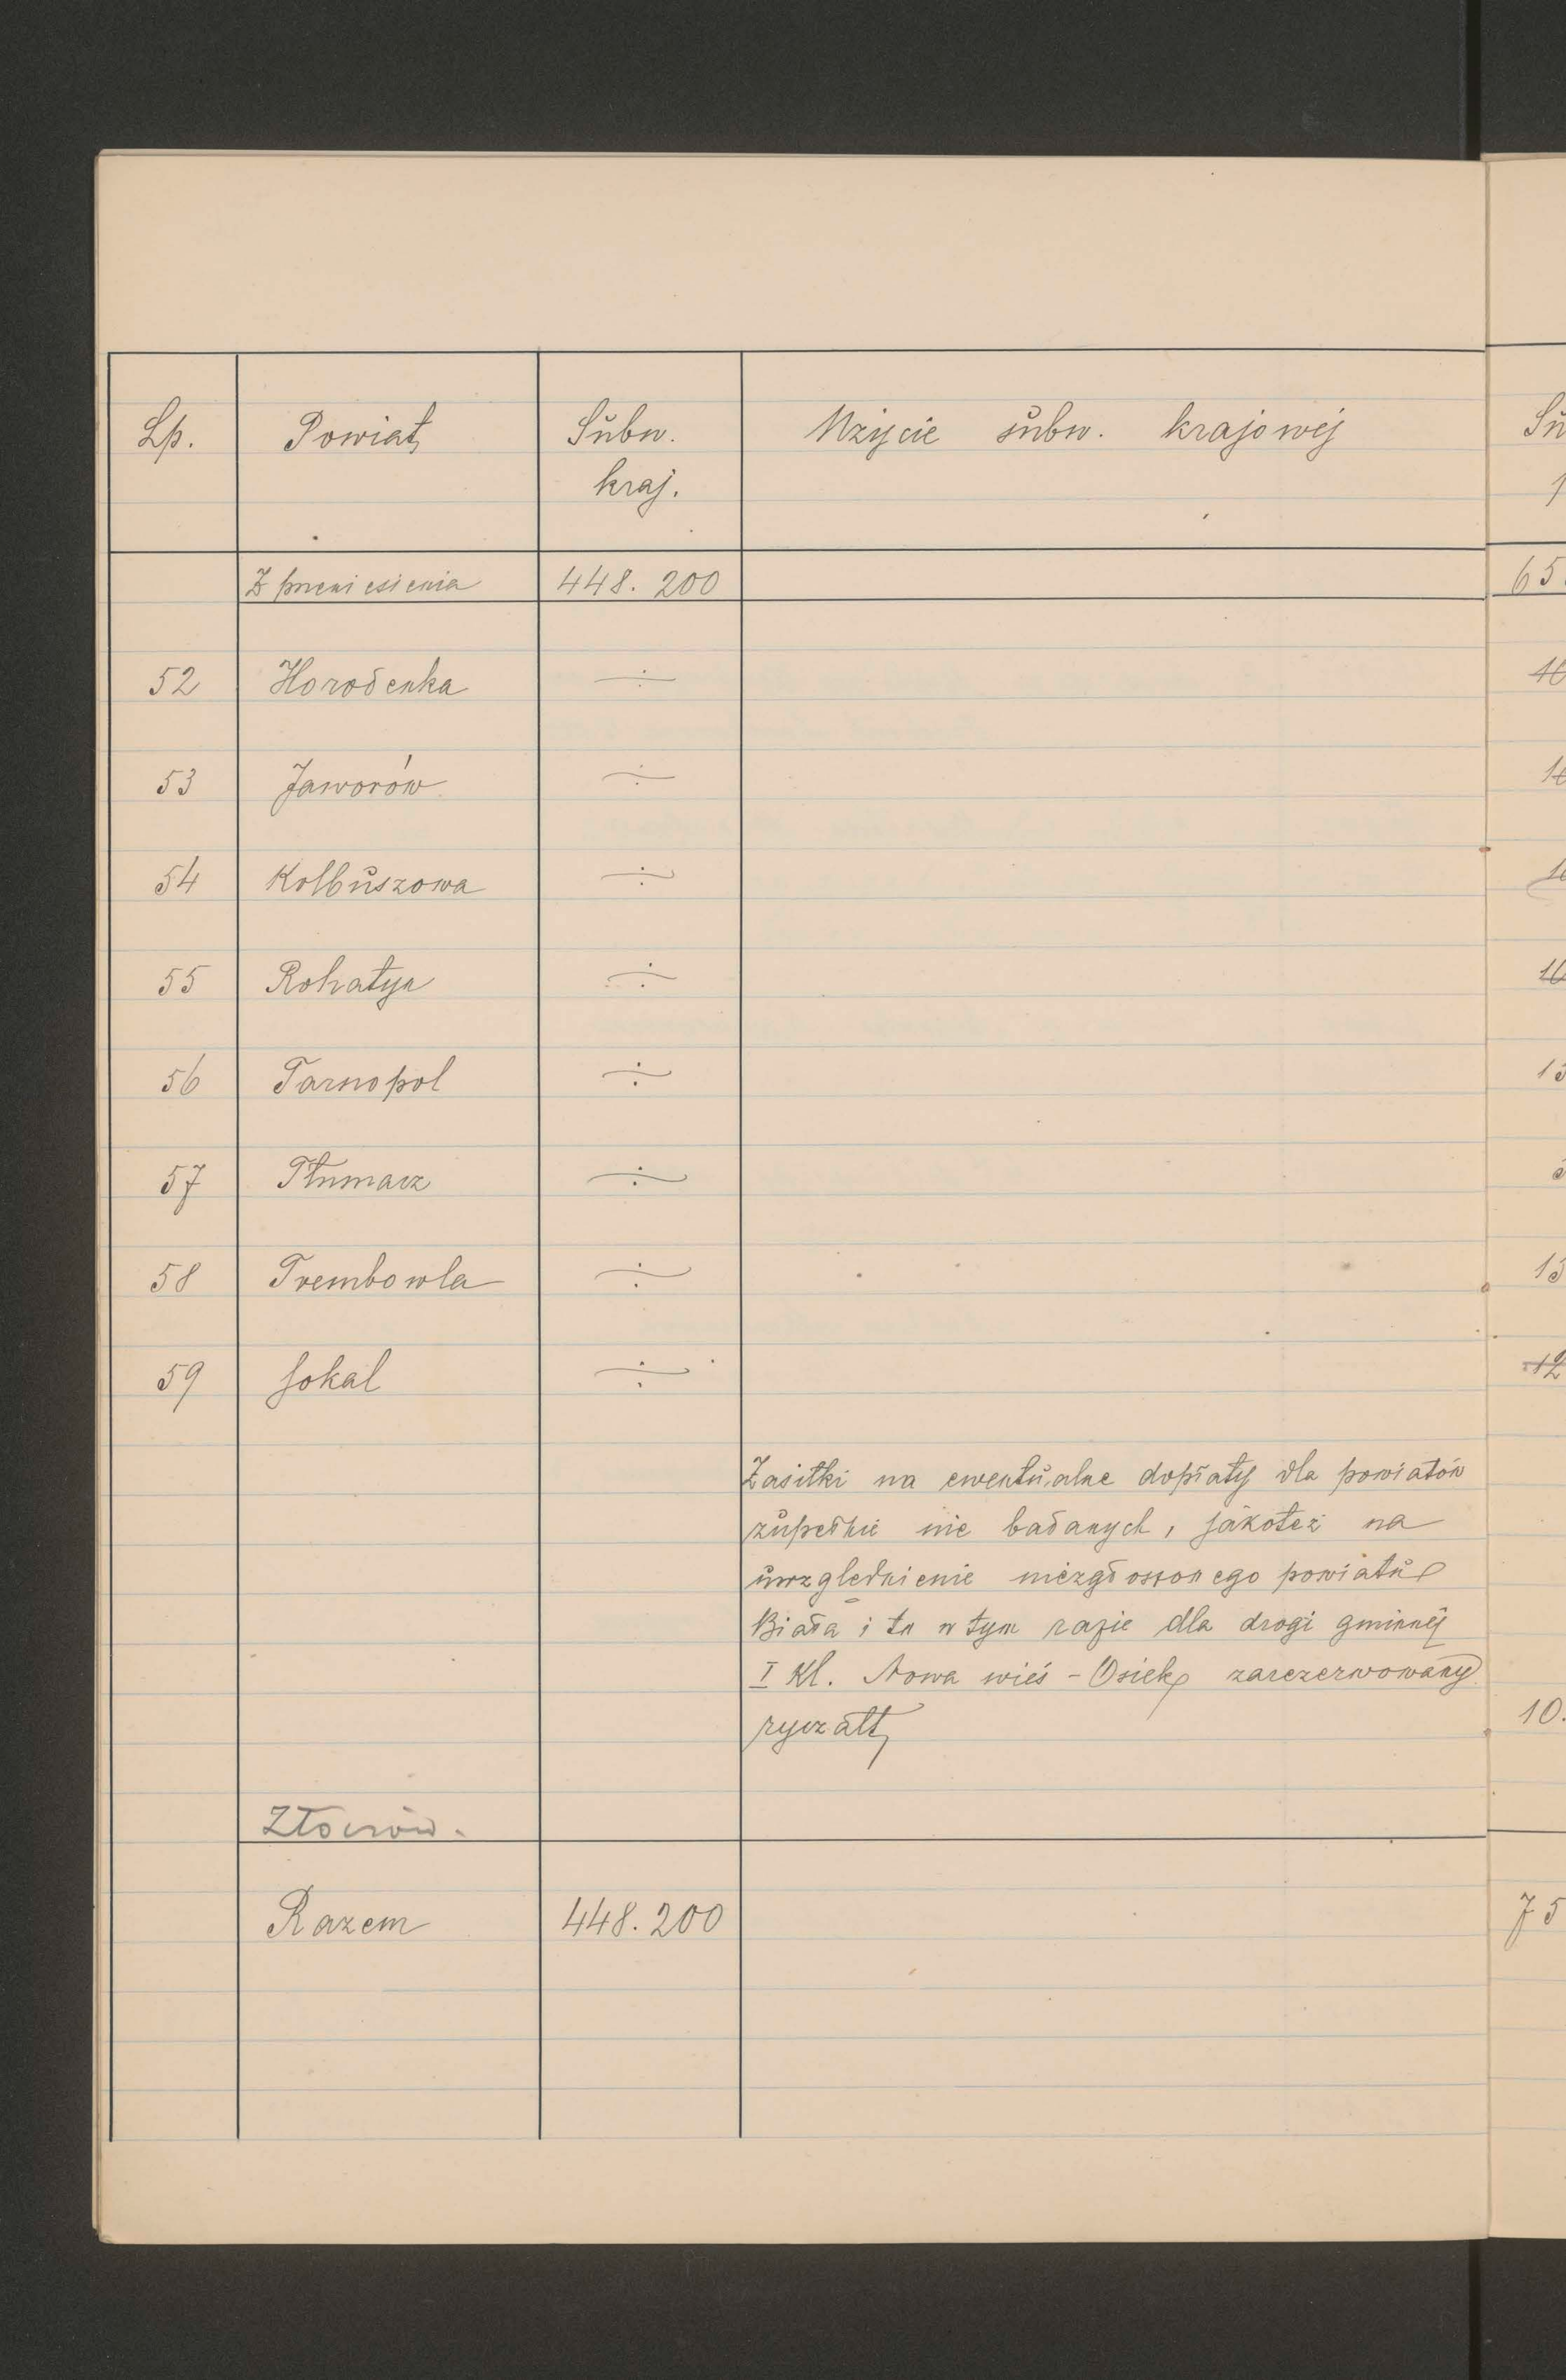 Lp. Powiat Subw. Użycie subw. krajowej
kraj.
Z przeniesienia 448.200
52 Horodenka ÷
53 Jaworów ÷
54 Kolbuszowa ÷
55 Rohatyn ÷
56 Tarnopol ÷
57 Tłumacz ÷
58 Trembowla ÷
59 Sokal ÷
Zasiłki na ewentualne dopłaty dla powiatów
zupełnie nie badanych, jakoteż na
uwzględnienie niezgłoszonego powiatu
Biała i to w tym razie dla drogi gminnej
I Kl. Nowa wieś - Osiek zarezerwowany
ryczałt
10.
Złoczów.
Razem 448.200